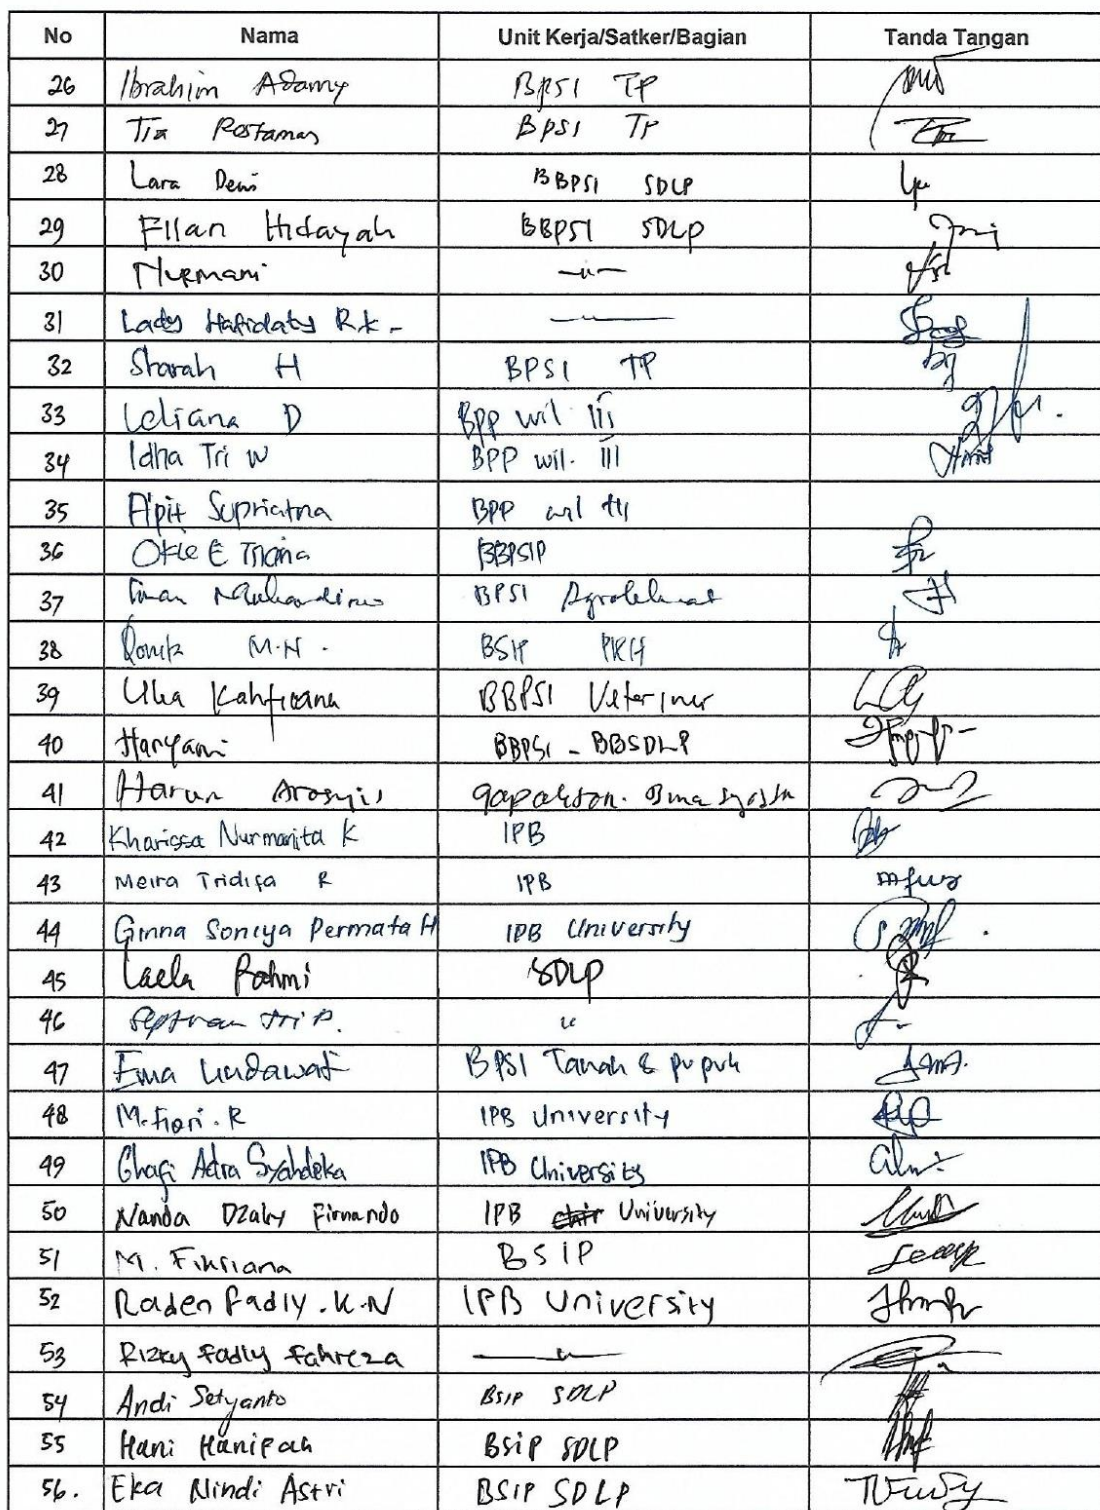 No Nama Unit Kerja/Satker/Bagian Tanda Tangan
26 Ibrahim Adamy BPSI TP
27 Tia Rostaman BPSI TP
28 Lara Dewi BBPSI SDLP
29 Fllan Hidayah BBPSI SDLP
30 Nurmani —„—
31 Lady Hafidaty R.K - —„—
32 Sharah H BPSI TP
33 Leliana D BPP wil III
34 Idha Tri W BPP wil. III
35 Apit Supriatna BPP wil III
36 Okie E Triana BBPSIP
37 BPSI Agroklimat
38 M.N. BSIP PKH
39 Ulia Kahfiana BBPSI Veteriner
40 Haryani BBPSI - BBSDLP
41 Harun
42 Kharissa Nurmanita K IPB
43 Meira Tridifa R IPB
44 Ginna Soniya Permata H IPB University
45 Laela Rahmi SDLP
46 Septian Tri P. „
47 Erna Lindawati BPSI Tanah & pupuk
48 M. Fiqri. R IPB University
49 Ghafi Adra Syahdeka IPB University
50 Nanda Dzaky Firnando IPB University
51 M. Fikriana BSIP
52 Raden Fadly. K.N IPB University
53 Rizky Fadly Fahreza —„—
54 Andi Setyanto BSIP SDLP
55 Hani Hanipah BSIP SDLP
56. Eka Nindi Astri BSIP SDLP